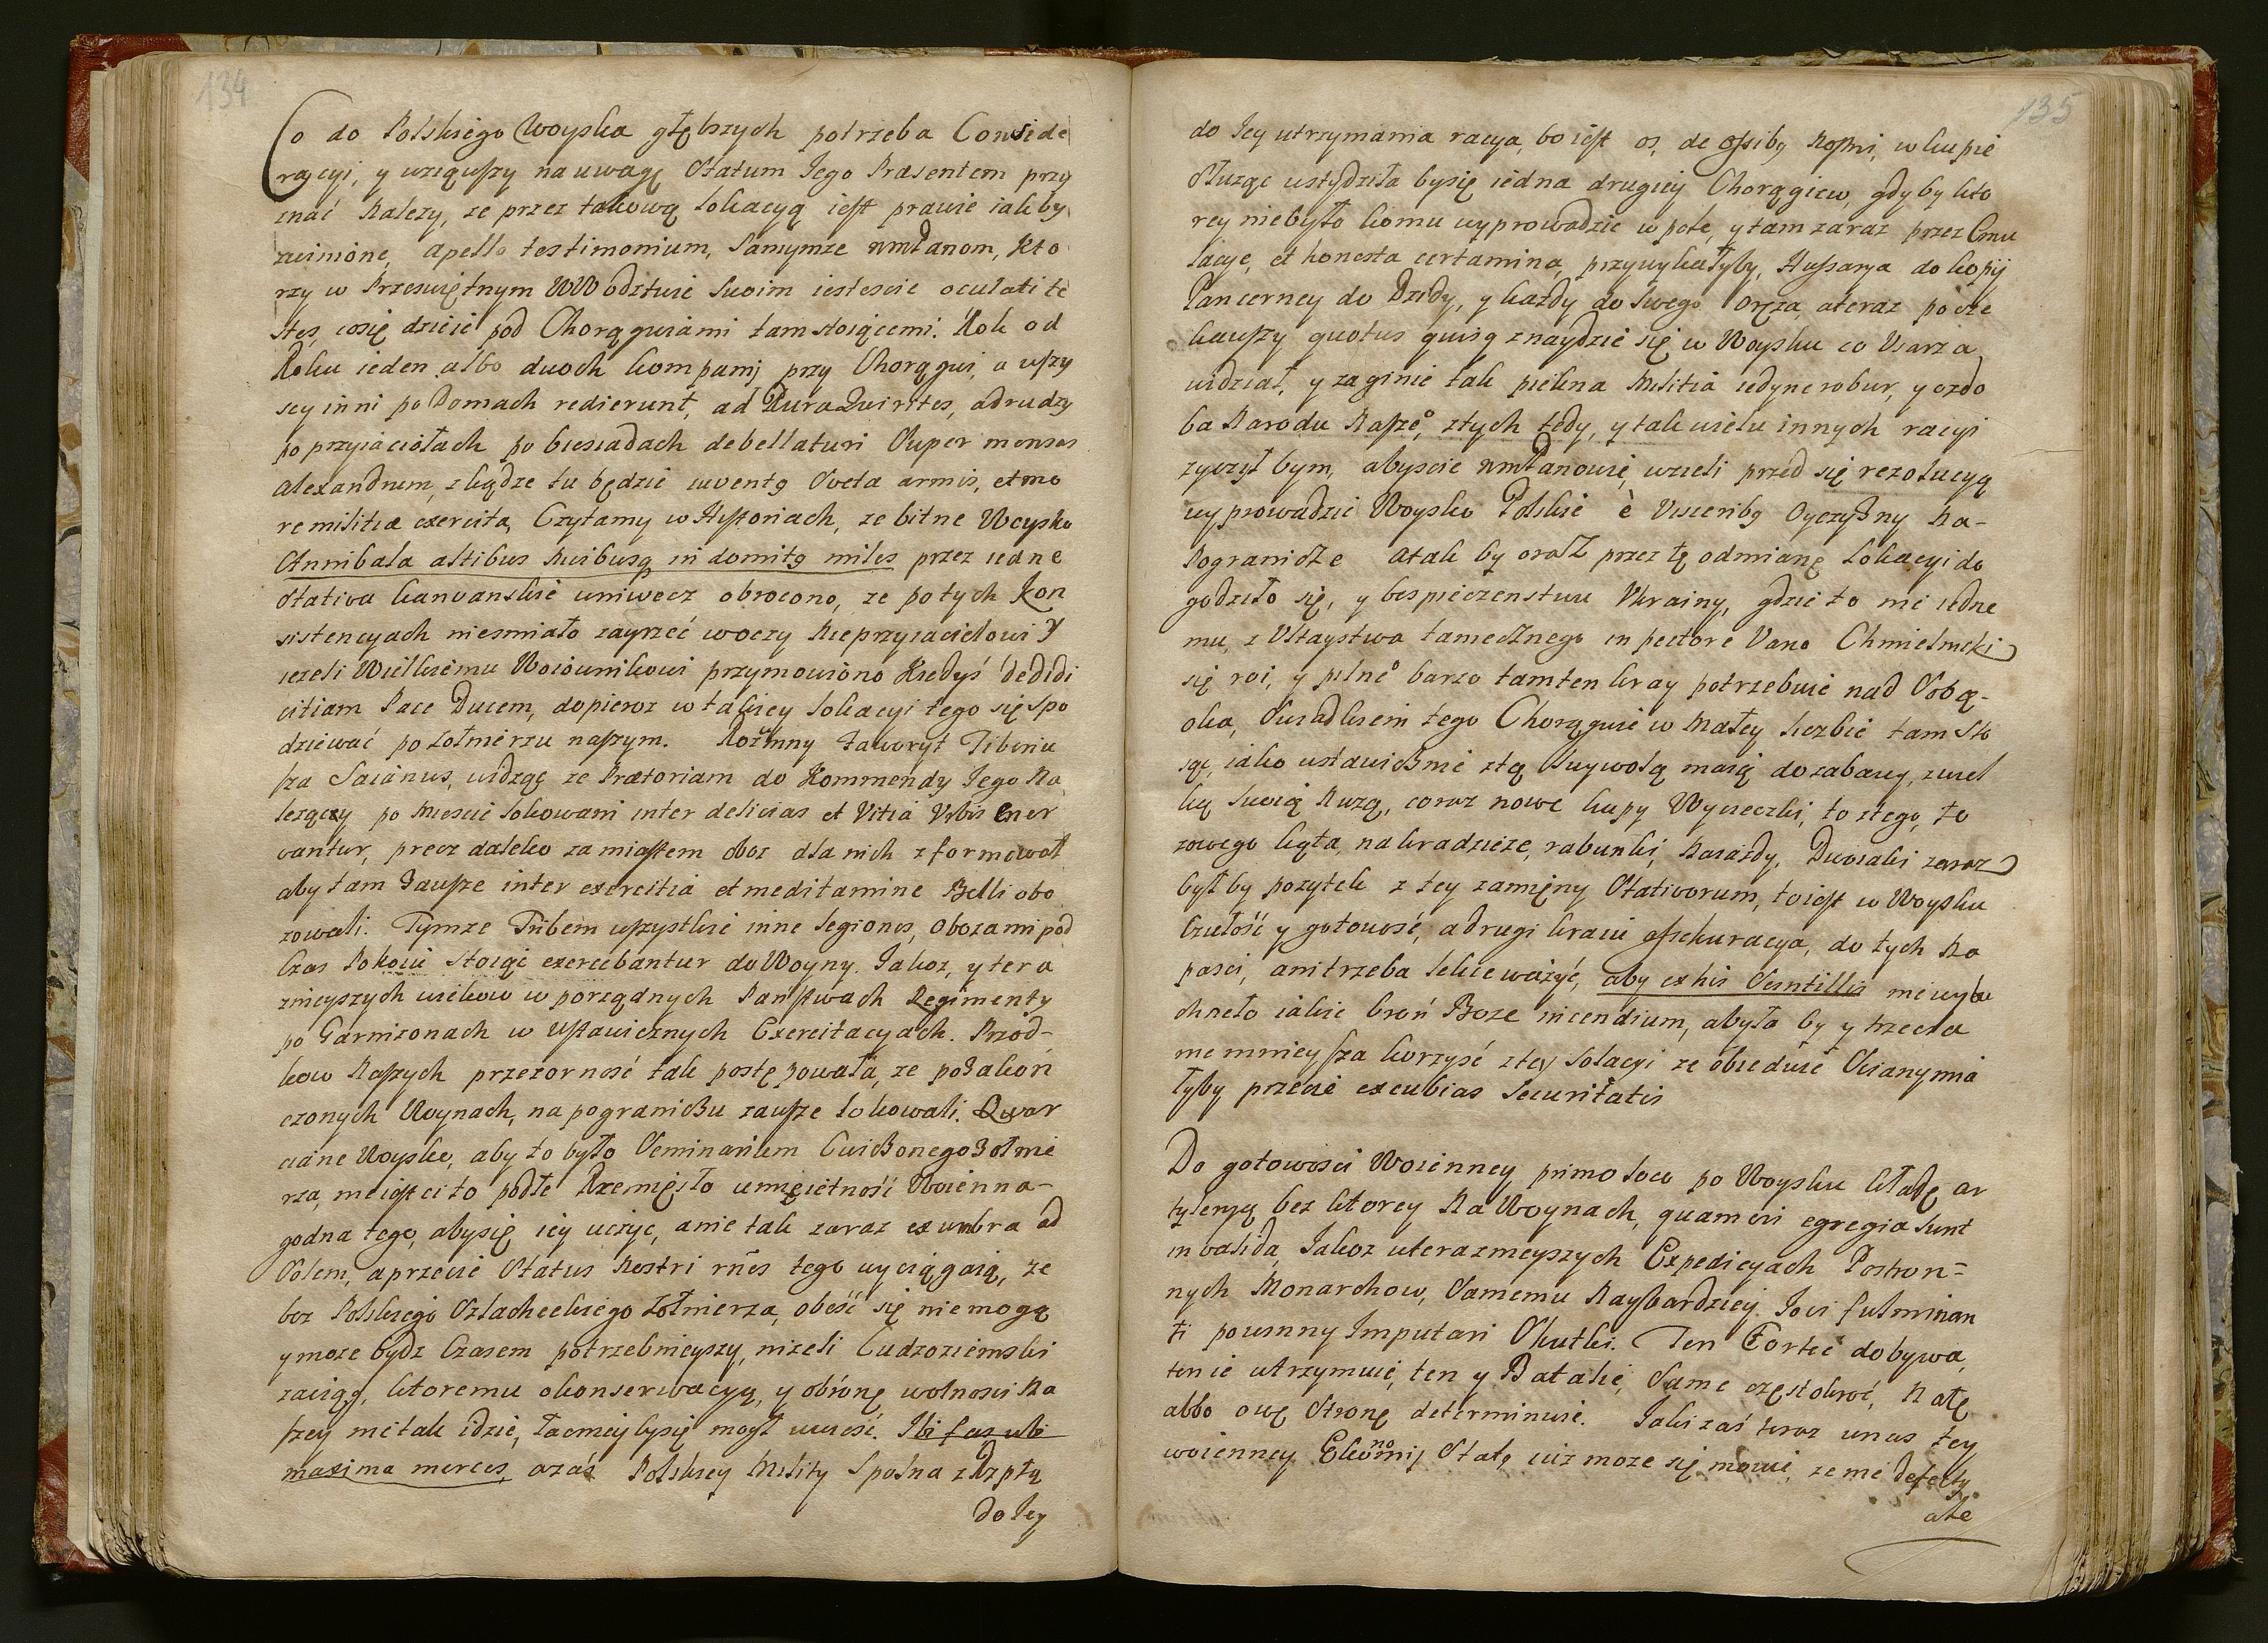 134
Co do Polskiego Woyska głębszych potrzeba Conside
racyi, y wziąwszy na uwagę Statum Jego Præsentem przy
znać Nalezy, ze przez takową lokacyą iest prawie iakby
zwinione, apello testimonium, Samymze WMPanom, Kto
rzy w Przeswiętnym WWodztwie Swoim iestescie oculati te
stes, cosię dzieie pod Chorągwiami tam stoiącemi. Rok od
Roku ieden albo dwoch kompanij przy Chorągwi, a wszy
scy inni po Domach redierunt, ad Rura Quirites, a drudzy
po przyiaciołach po biesiadach debellaturi Super mensas
Alexandrum, zkądze tu będzie iuventq Sveta armis, et mo
re militiæ exercita, Czytamy w Historiach, ze bitne Woysko
Annibala altibus Nivibusq indomitq miles przez iedne
Stativa kanvanskie wniwecz obrocono, ze po tych Kon
sistencyach niesmiało zayrzeć w oczy Nieprzyiacielowi y
iezeli Wielkiemu Woiownikowi przymowiono Kiedyś dedidi
citiam Pace Ducem, dopieroz w takiey lokacyi tego się Spo
dziewać po Zołnierzu naszym. Rozumny Faworyt Tiberiu
sza Saianus, widząc ze Prætoriam do Kommendy Jego Na
lezący po Miescie lokowani inter delicias et Vitia Urbis Ener
vantur, precz daleko za miastem oboz dla nich zformował
aby tam zawsze inter exercitia et meditamine Belli obo
zowali. Tymze Tribem wszystkie inne legiones, Obozami pod
Czas Pokoiu Stoiąc exercebantur do Woyny. Jakoz, y tera
znieyszych wiekow w porządnych Państwach Regimenty
po Garnizonach w Ustawicznych Exercitacyach. Przod-
kow Naszych przezorność tak postępowała, ze po Zakoń
czonych Woynach, na pograniczu zawsze lokowali. Qwar
ciane Woysko, aby to było Seminarium Cwiczonego Zołnie
rza, nieiest ci to podłe Rzemięsło umięiętność Woienna-
godna tego, abysię iey uczyc, a nie tak zaraz ex umbra ad
Solem, a przecie Status Nostri rñes tego wyciągaią, ze
bez Polskiego Szlacheckiego Zołnierza, obeść się niemogą
y moze bydz Czasem potrzebnieyszy, nizeli Cudzoziemski
zaciąg, ktoremu o konserwacyą, y obronę wolnosci Na
szey nie tak idzie, łacniey bysię mogł uwieść. Ibi fas ubi
maxima merces, a zaś Polskiey Mility Spolna z Rzptą
do Jey
135
do Jey utrzymania racya, bo iest os, de ossibq Nostri, w kupie
Służąc wstydziła bysię iedna drugiey Chorągiew, gdyby kto
rey niebyło komu wyprowadzic w pole, y tam zaraz przez Emu
lacye, et honesta certamina, przywykałyby, Hussarya do kopij
Pancerney do Dzidy, y każdy do Swego Oręza, a teraz pocze
kawszy quotus quisq znaydzie się w Woysku co Usarza
widział, y zaginie tak piękna Militia iedyne robur, y ozdo
ba Narodu Naszeo, ztych tedy, y tak wielu innych racyi
zyczył bym, abyscie WMPanowie, wzieli przed się rezolucyą
wyprowadzic Woysko Polskie è Visceribq Oyczyzny Na-
Pogranicze a tak by oraz przez tę odmianę lokacyi do
godziło się, y bespieczenstwu Ukrainy, gdzie to nie iedne
mu, z Ultaystwa tamecznego in pectore Vano Chmielnicki
się roi, y pilneo barzo tamten kray potrzebuie nad Sobą-
oka, Swiadkiem tego Chorągwie w Małey liczbie tam Sto
iąc, iako ustawicznie ztą Swywolą maią do zabawy, z wiel
ką Swoią Nuzą, coraz nowe kupy Wycieczki, to ztego, to
zowego kąta, na kradzieze, rabunki, Naiazdy, Dwoiaki zaraz
był by pozytek z tey zamiany Stativorum, to iest w Woysku
Czułość y gotowość, a drugi kraiu assekuracya, do tych Na
paści, ani trzeba lekce ważyć, aby ex his Scintillis nie wybu
chneło iakie broń Boze incendium, abyła by y trzecia
nie mnieysza korzysć z tey lolacyi ze obiedwie Sciany mia
łyby przecie excubias Securitatis
Do gotowosci Woienney primo loco po Woysku kładę ar
tyleryą bez ktorey Na Woynach, quamvis egregia Sunt
invalida, Jakoz w teraznieyszych Expedicyach Postron-
nych Monarchow, Samemu Naybardziey Jovi fulminan
ti powinny Imputari Skutki. Ten Fortec dobywa,
ten ie utrzymuie, ten y Batalie, Same częstokroć, Na tę
albo owę Stronę determinuie. Jaki zaś teraz unas tey
woienney Ekonomij Statq iuż moze się mowic, ze nie defecty
ale